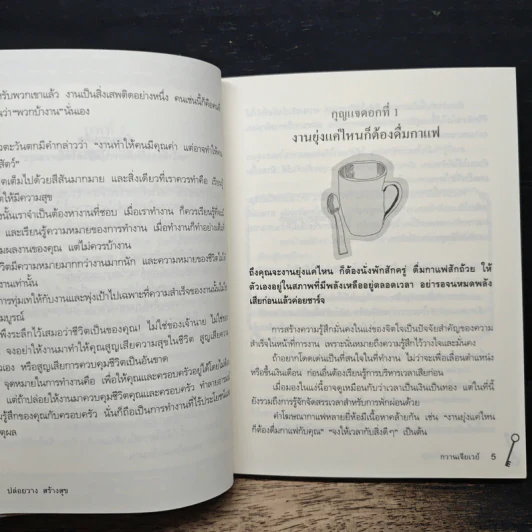 หรับพวกเขาแล้ว งานเป็นสิ่งเสพติดอย่างหนึ่ง คนเช่นนี้ก็คือคนที่
ว่า"พวกบ้างาน"นั่นเอง
งตะวันตกมีคำกล่าวว่า "งานทำให้คนมีคุณค่า แต่อาจทำให้คน
สัตว์"
ตเต็มไปด้วยสีสันมากมาย และสิ่งเดียวที่เราควรทำคือ เรียนรู้
ให้มีความสุข
งนั้นเราจำเป็นต้องหางานที่ชอบ เมื่อเราทำงาน ก็ควรเรียนรู้
และเรียนรู้ความหมายของการทำงาน เมื่อทำงานก็ทำอย่างเต็มที่
มผลงานของคุณ แต่ไม่ควรบ้างาน
วิตมีความหมายมากกว่างานมากนัก และความหมายของชีวิต
งานเท่านั้น
การทุ่มเทให้กับงานและพุ่งเป้าไปเฉพาะที่ความสำเร็จของงานนั้นไม่ใช่
มบูรณ์
พึงระลึกไว้เสมอว่าชีวิตเป็นของคุณ! ไม่ใช่ของเจ้านาย ไม่ใช่ของ
จงอย่าให้งานมาทำให้คุณสูญเสียความสุขในชีวิต สูญเสียความ
เอง หรือสูญเสียการควบคุมชีวิตเป็นอันขาด
จุดหมายในการทำงานคือ เพื่อให้คุณและครอบครัวอยู่ได้โดยไม่
แต่ถ้าปล่อยให้งานมาควบคุมชีวิตคุณและครอบครัว ทำลายการ
รู้สึกของคุณกับครอบครัว นั่นก็ถือเป็นการทำงานที่ไร้ประโยชน์
ตุผล
ปล่อยวาง สร้างสุข
กุญแจดอกที่ 1
งานยุ่งแค่ไหนก็ต้องดื่มกาแฟ
ถึงคุณจะงานยุ่งแค่ไหน ก็ต้องนั่งพักสักครู่ ดื่มกาแฟสักถ้วย ให้
ตัวเองอยู่ในสภาพที่มีพลังเหลืออยู่ตลอดเวลา อย่ารอจนหมดพลัง
เสียก่อนแล้วค่อยชาร์จ
การสร้างความรู้สึกมั่นคงในแง่ของจิตใจเป็นปัจจัยสำคัญของความ
สำเร็จในหน้าที่การงาน เพราะนั่นหมายถึงความรู้สึกไว้วางใจและมั่นคง
ถ้าอยากโดดเด่นเป็นที่สนใจในที่ทำงาน ไม่ว่าจะเพื่อเลื่อนตำแหน่ง
หรือขึ้นเงินเดือน ก่อนอื่นต้องเรียนรู้การบริหารเวลาเสียก่อน
เมื่อมองในแง่นี้อาจดูเหมือนกับว่าเวลาเป็นเงินเป็นทอง แต่ในที่นี้
ยังรวมถึงการรู้จักจัดสรรเวลาสำหรับการพักผ่อนด้วย
คำโฆษณากาแฟหลายยี่ห้อมีเนื้อหาคล้ายกัน เช่น "งานยุ่งแค่ไหน
ก็ต้องดื่มกาแฟกับคุณ" "จงให้เวลากับสิ่งดีๆ" เป็นต้น
กวานเจียเวย์ 5